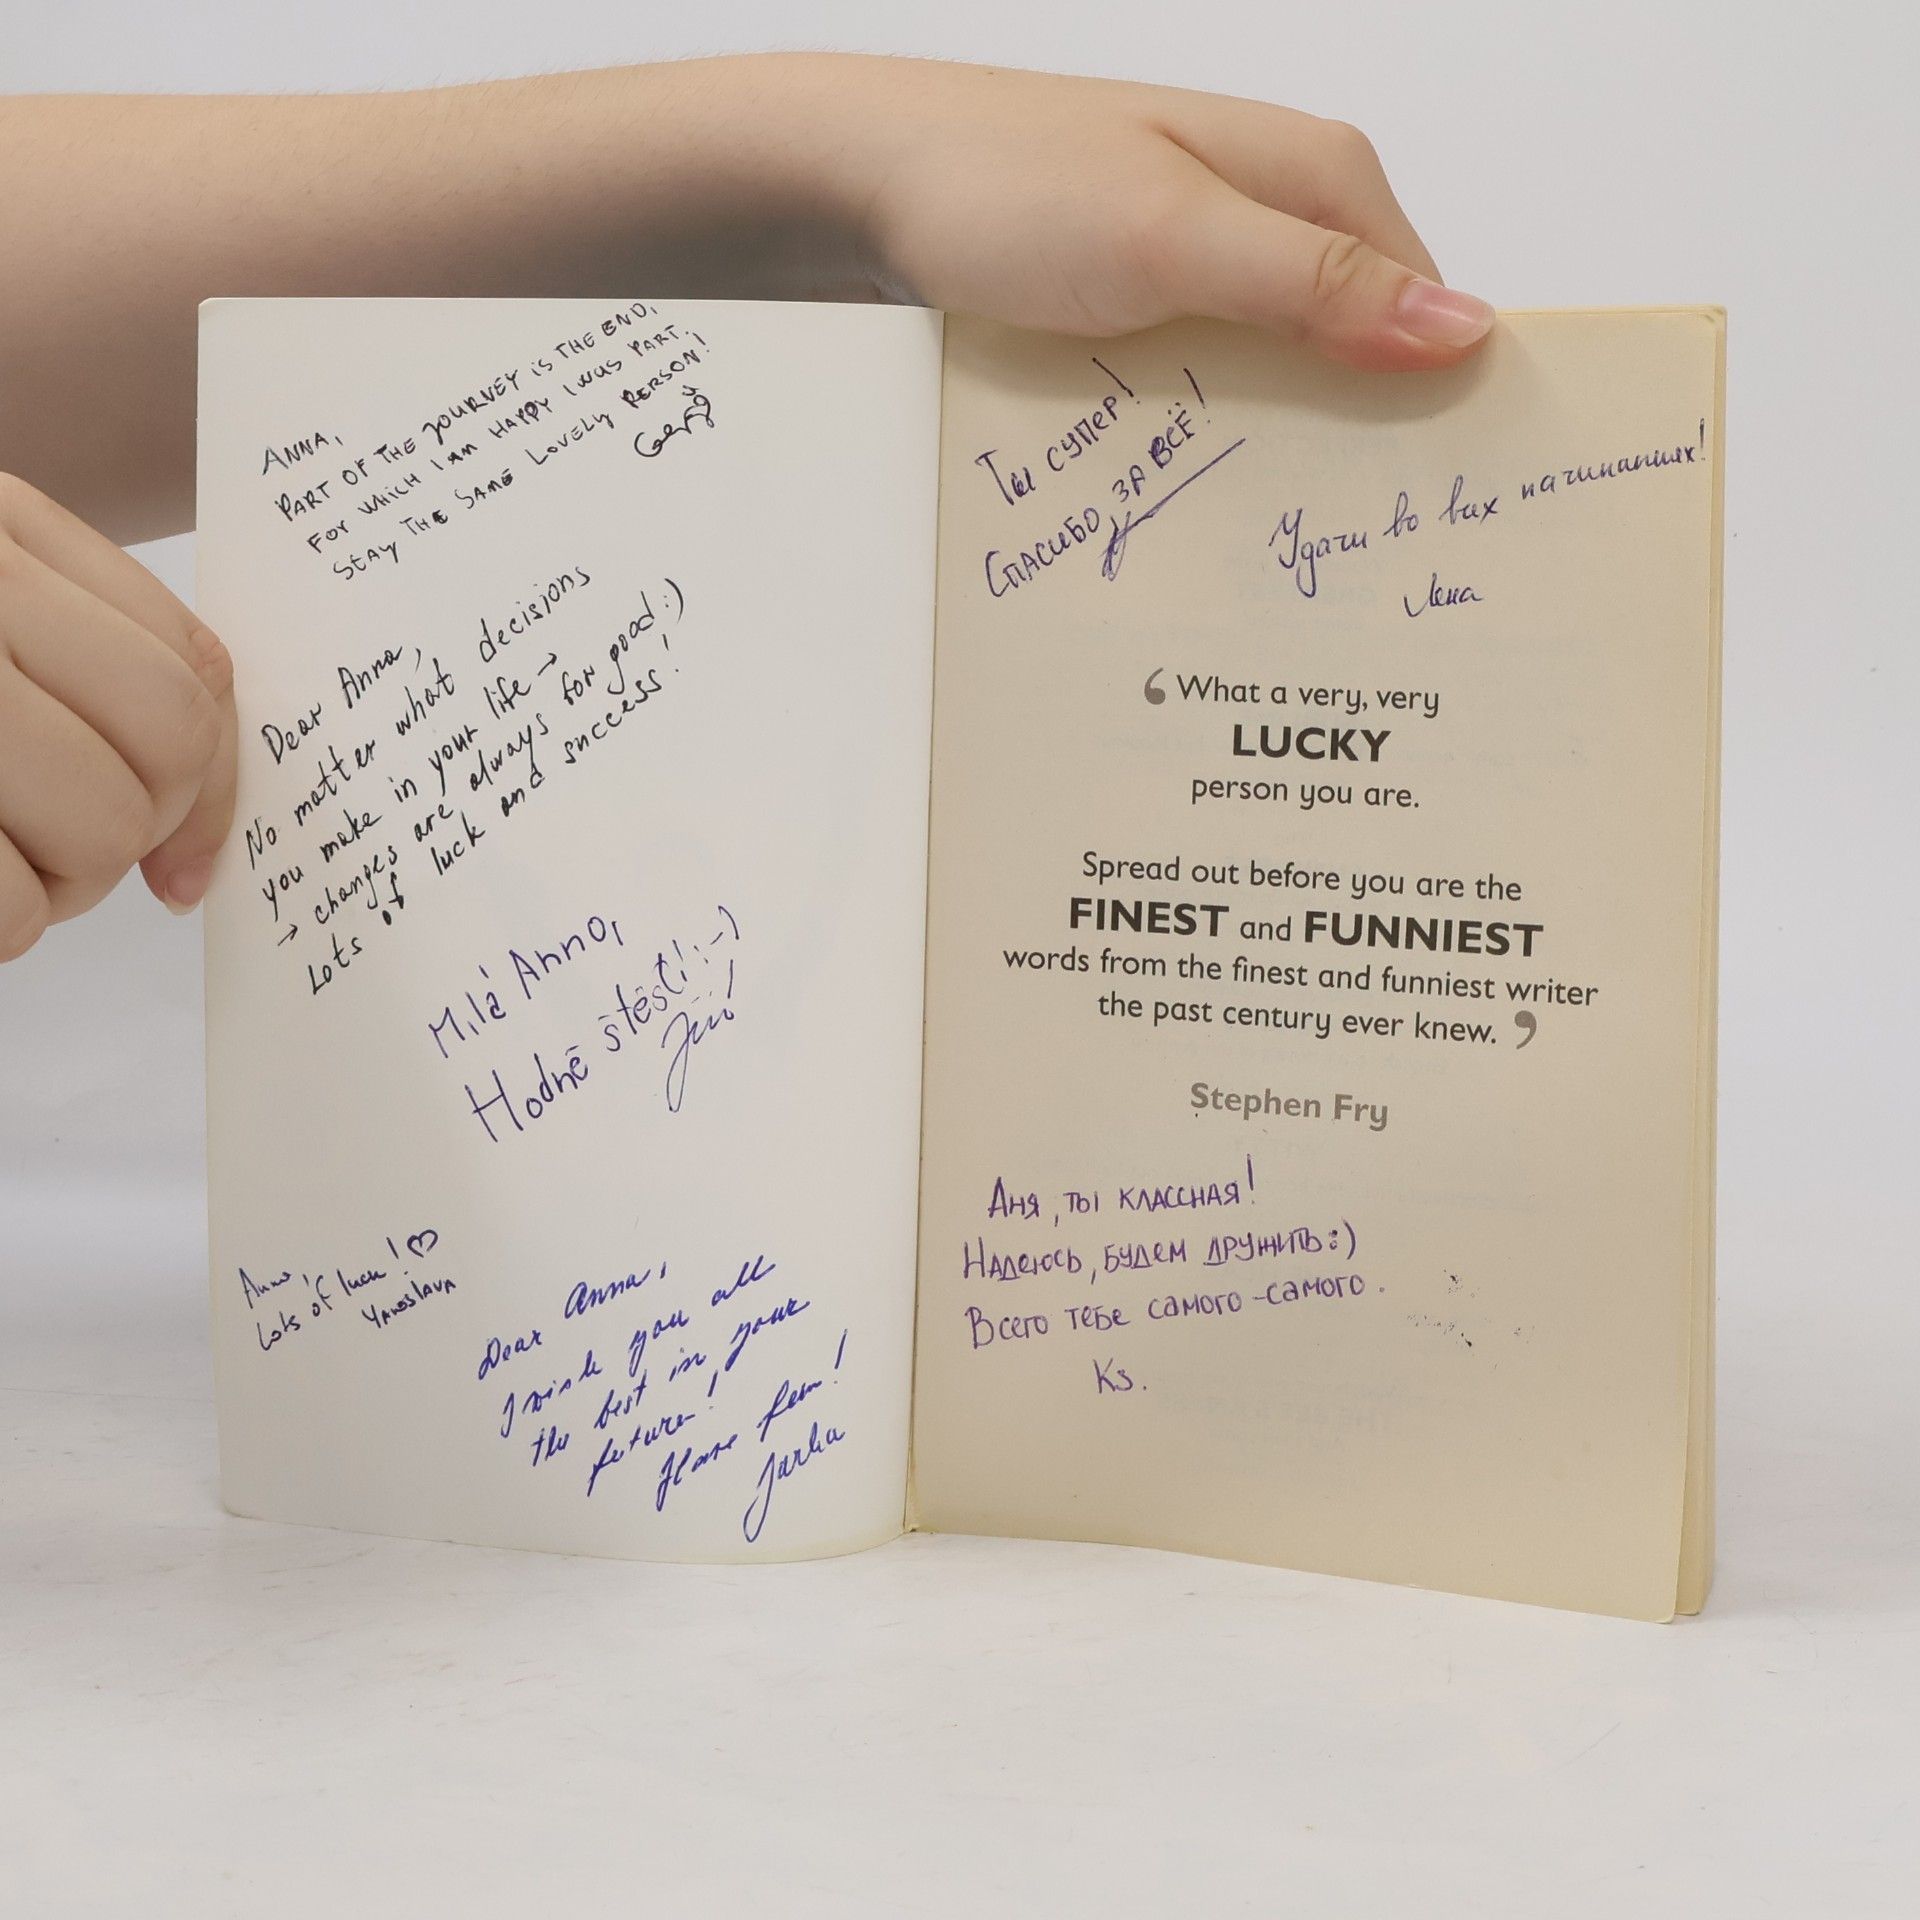 ANNA,
PART OF THE JOURNEY IS THE END,
FOR WHICH I AM HAPPY I WAS PART.
STAY THE SAME LOVELY PERSON!
Dear Anna,
No matter what decisions
you make in your life →
→ changes are always for good :)
Lots of luck and success!
Milá Anno,
Hodně štěstí! :-)
Jiří
Anna,
Lots of luck! ♡
YAROSLAVA
Dear Anna,
I wish you all
the best in your
future!
Have fun!
Jarka
Ты супер!
Спасибо за всё!
Удачи во всех начинаниях!
Лена
‘What a very, very
LUCKY
person you are.
Spread out before you are the
FINEST and FUNNIEST
words from the finest and funniest writer
the past century ever knew.’
Stephen Fry
Аня, ты классная!
Надеюсь, будем дружить :)
Всего тебе самого-самого.
Ks.